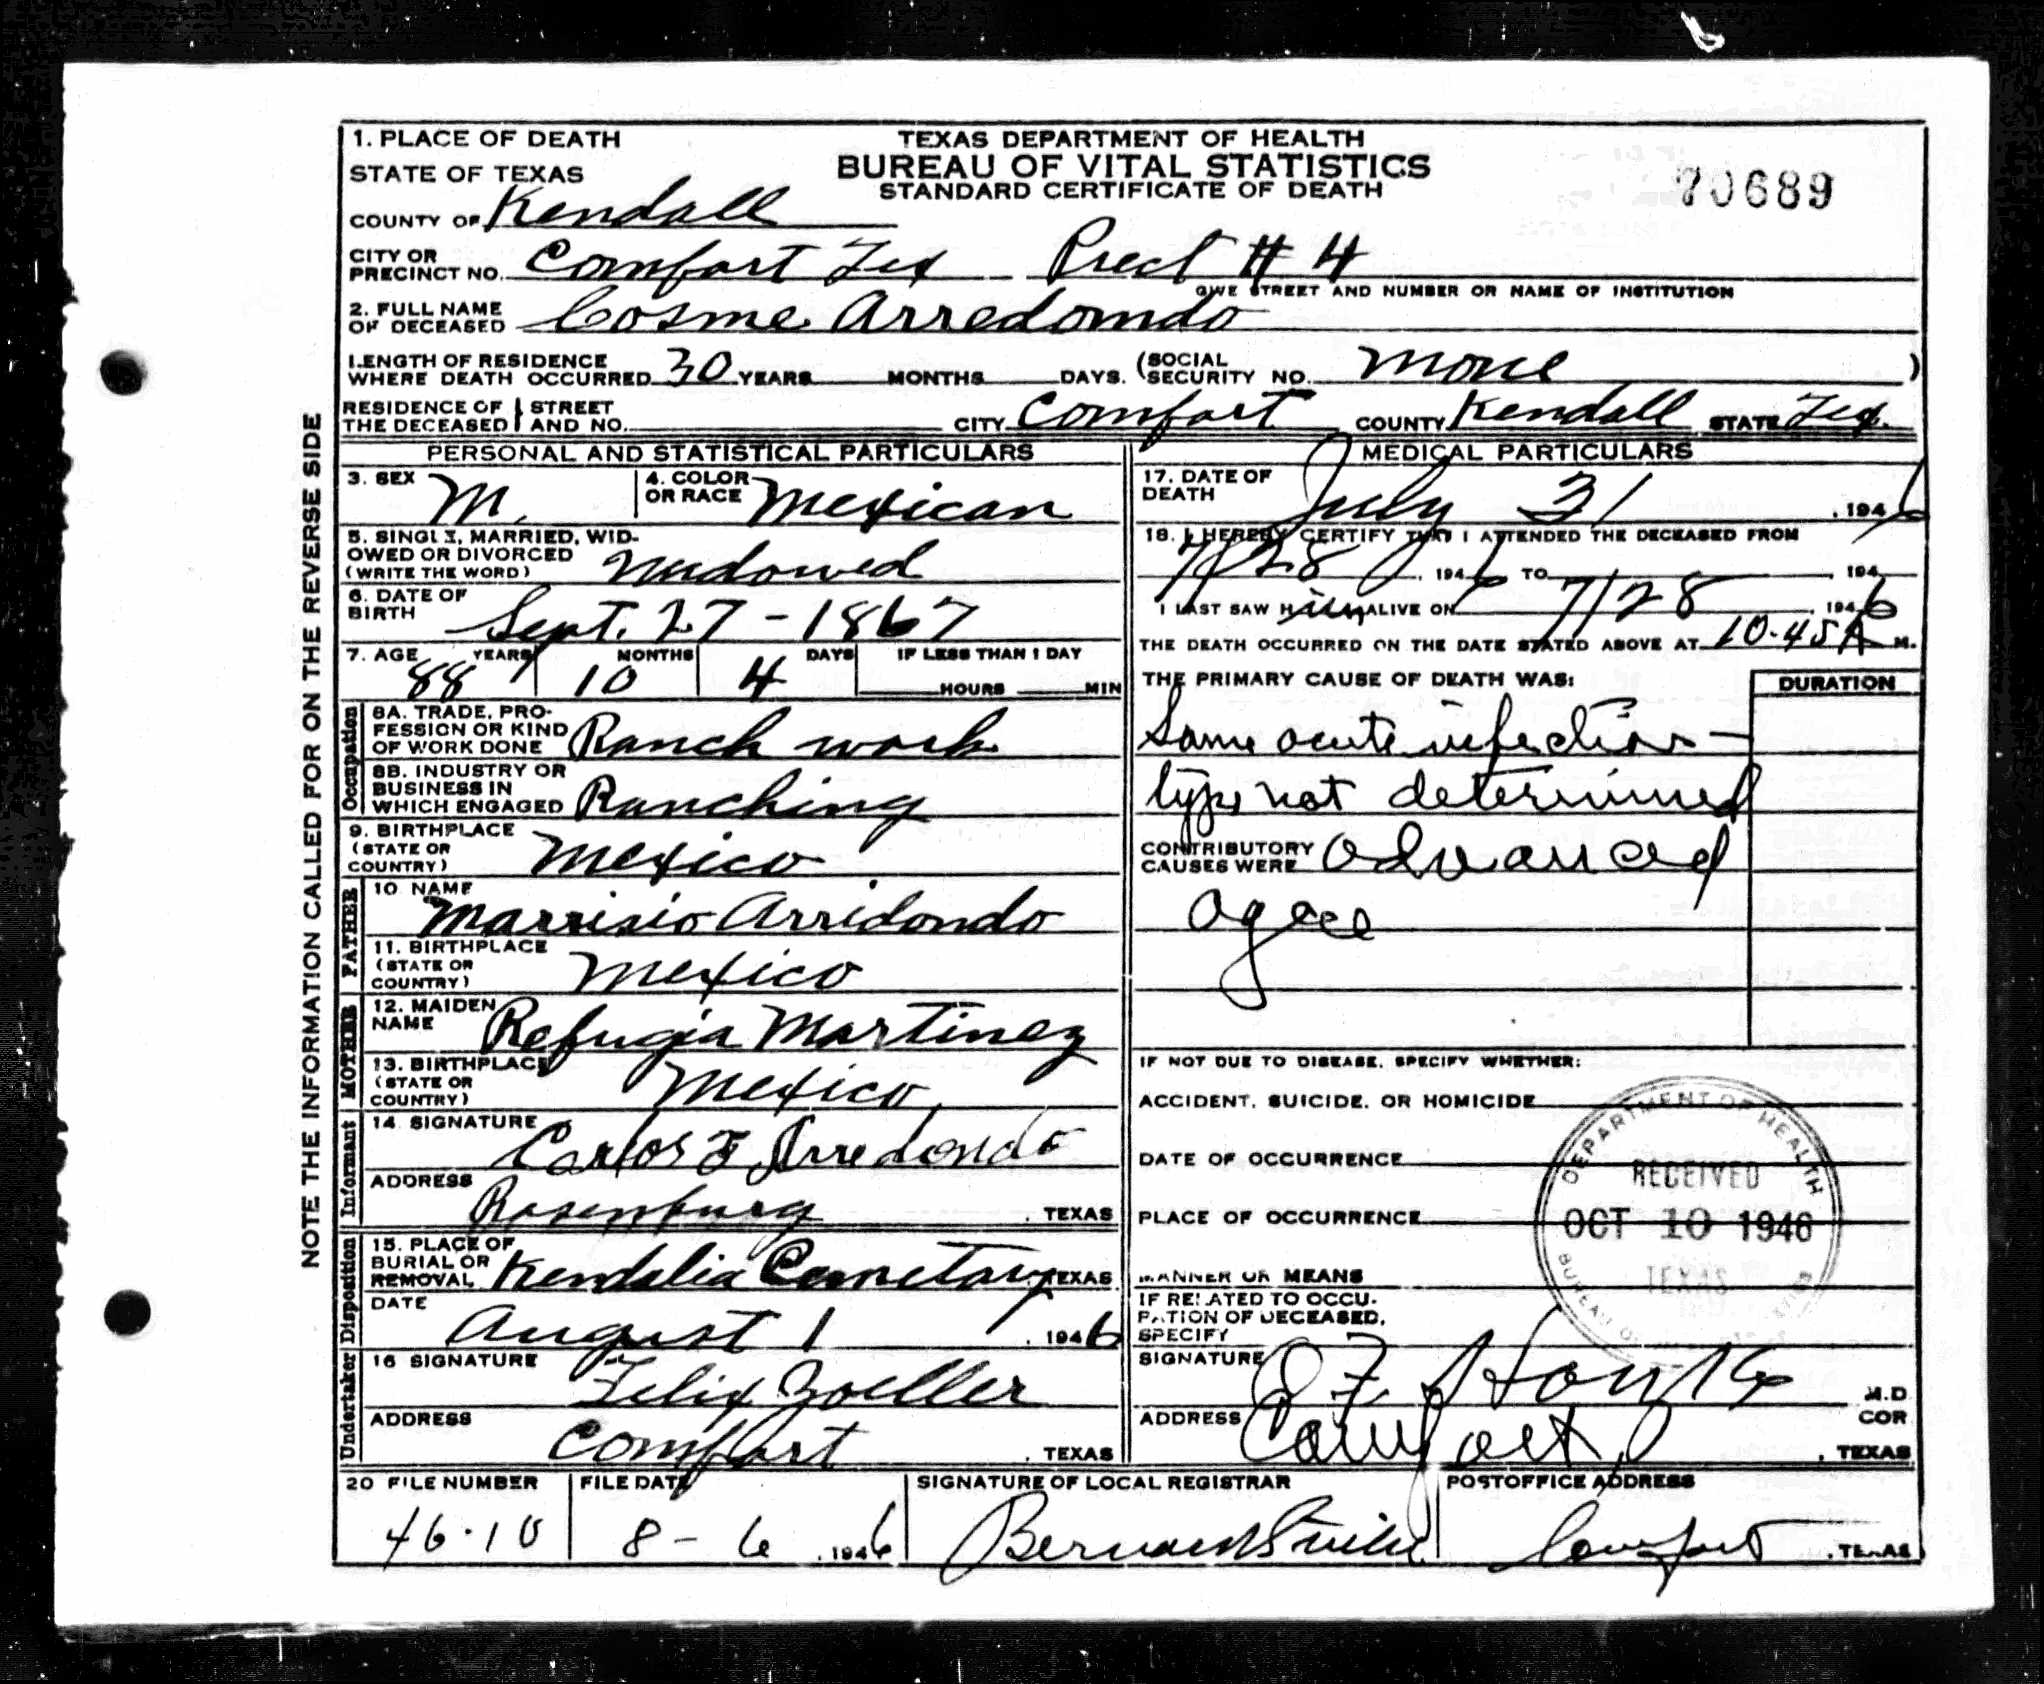 1. PLACE OF DEATH
STATE OF TEXAS
COUNTY OF Kendall
TEXAS DEPARTMENT OF HEALTH
BUREAU OF VITAL STATISTICS
STANDARD CERTIFICATE OF DEATH
70689
CITY OR PRECINCT NO. Comfort Tex Prect # 4
GIVE STREET AND NUMBER OR NAME OF INSTITUTION
2. FULL NAME OF DECEASED Cosme Arredomdo
LENGTH OF RESIDENCE WHERE DEATH OCCURRED 30 YEARS MONTHS DAYS. (SOCIAL SECURITY NO. None )
RESIDENCE OF THE DECEASED STREET AND NO. CITY Comfort COUNTY Kendall STATE Tex.
NOTE THE INFORMATION CALLED FOR ON THE REVERSE SIDE
PERSONAL AND STATISTICAL PARTICULARS
3. SEX M. 4. COLOR OR RACE Mexican
5. SINGLE, MARRIED, WIDOWED OR DIVORCED (WRITE THE WORD) Widowed
6. DATE OF BIRTH Sept. 27 - 1867
7. AGE YEARS 88 MONTHS 10 DAYS 4 IF LESS THAN 1 DAY HOURS MIN
Occupation
8A. TRADE, PROFESSION OR KIND OF WORK DONE Ranch work
8B. INDUSTRY OR BUSINESS IN WHICH ENGAGED Ranching
9. BIRTHPLACE (STATE OR COUNTRY) Mexico
FATHER
10 NAME Marrisio Arridondo
11. BIRTHPLACE (STATE OR COUNTRY) Mexico
MOTHER
12. MAIDEN NAME Refugia Martinez
13. BIRTHPLACE (STATE OR COUNTRY) Mexico
Informant
14. SIGNATURE Carlos F Arredondo
ADDRESS Rosenburg , TEXAS
Disposition
15. PLACE OF BURIAL OR REMOVAL Kendalia Cemetary TEXAS
DATE August 1 , 1946
Undertaker
16 SIGNATURE Felix Zoeller
ADDRESS Comfort , TEXAS
MEDICAL PARTICULARS
17. DATE OF DEATH July 31 , 1946
18. I HEREBY CERTIFY THAT I ATTENDED THE DECEASED FROM
7/28 , 1946 TO , 194
I LAST SAW Him ALIVE ON 7/28 , 1946
THE DEATH OCCURRED ON THE DATE STATED ABOVE AT 10-45 A M.
THE PRIMARY CAUSE OF DEATH WAS: DURATION
Some acute infection -
type not determined
CONTRIBUTORY CAUSES WERE advanced
age
IF NOT DUE TO DISEASE, SPECIFY WHETHER:
ACCIDENT, SUICIDE, OR HOMICIDE
DATE OF OCCURRENCE
PLACE OF OCCURRENCE
MANNER OR MEANS
IF RELATED TO OCCUPATION OF DECEASED, SPECIFY
DEPARTMENT OF HEALTH
RECEIVED
OCT 10 1946
TEXAS
SIGNATURE M.D.
COR
ADDRESS Comfort , TEXAS
20 FILE NUMBER 46-10
FILE DATE 8-6 , 1946
SIGNATURE OF LOCAL REGISTRAR
POSTOFFICE ADDRESS Comfort , TEXAS